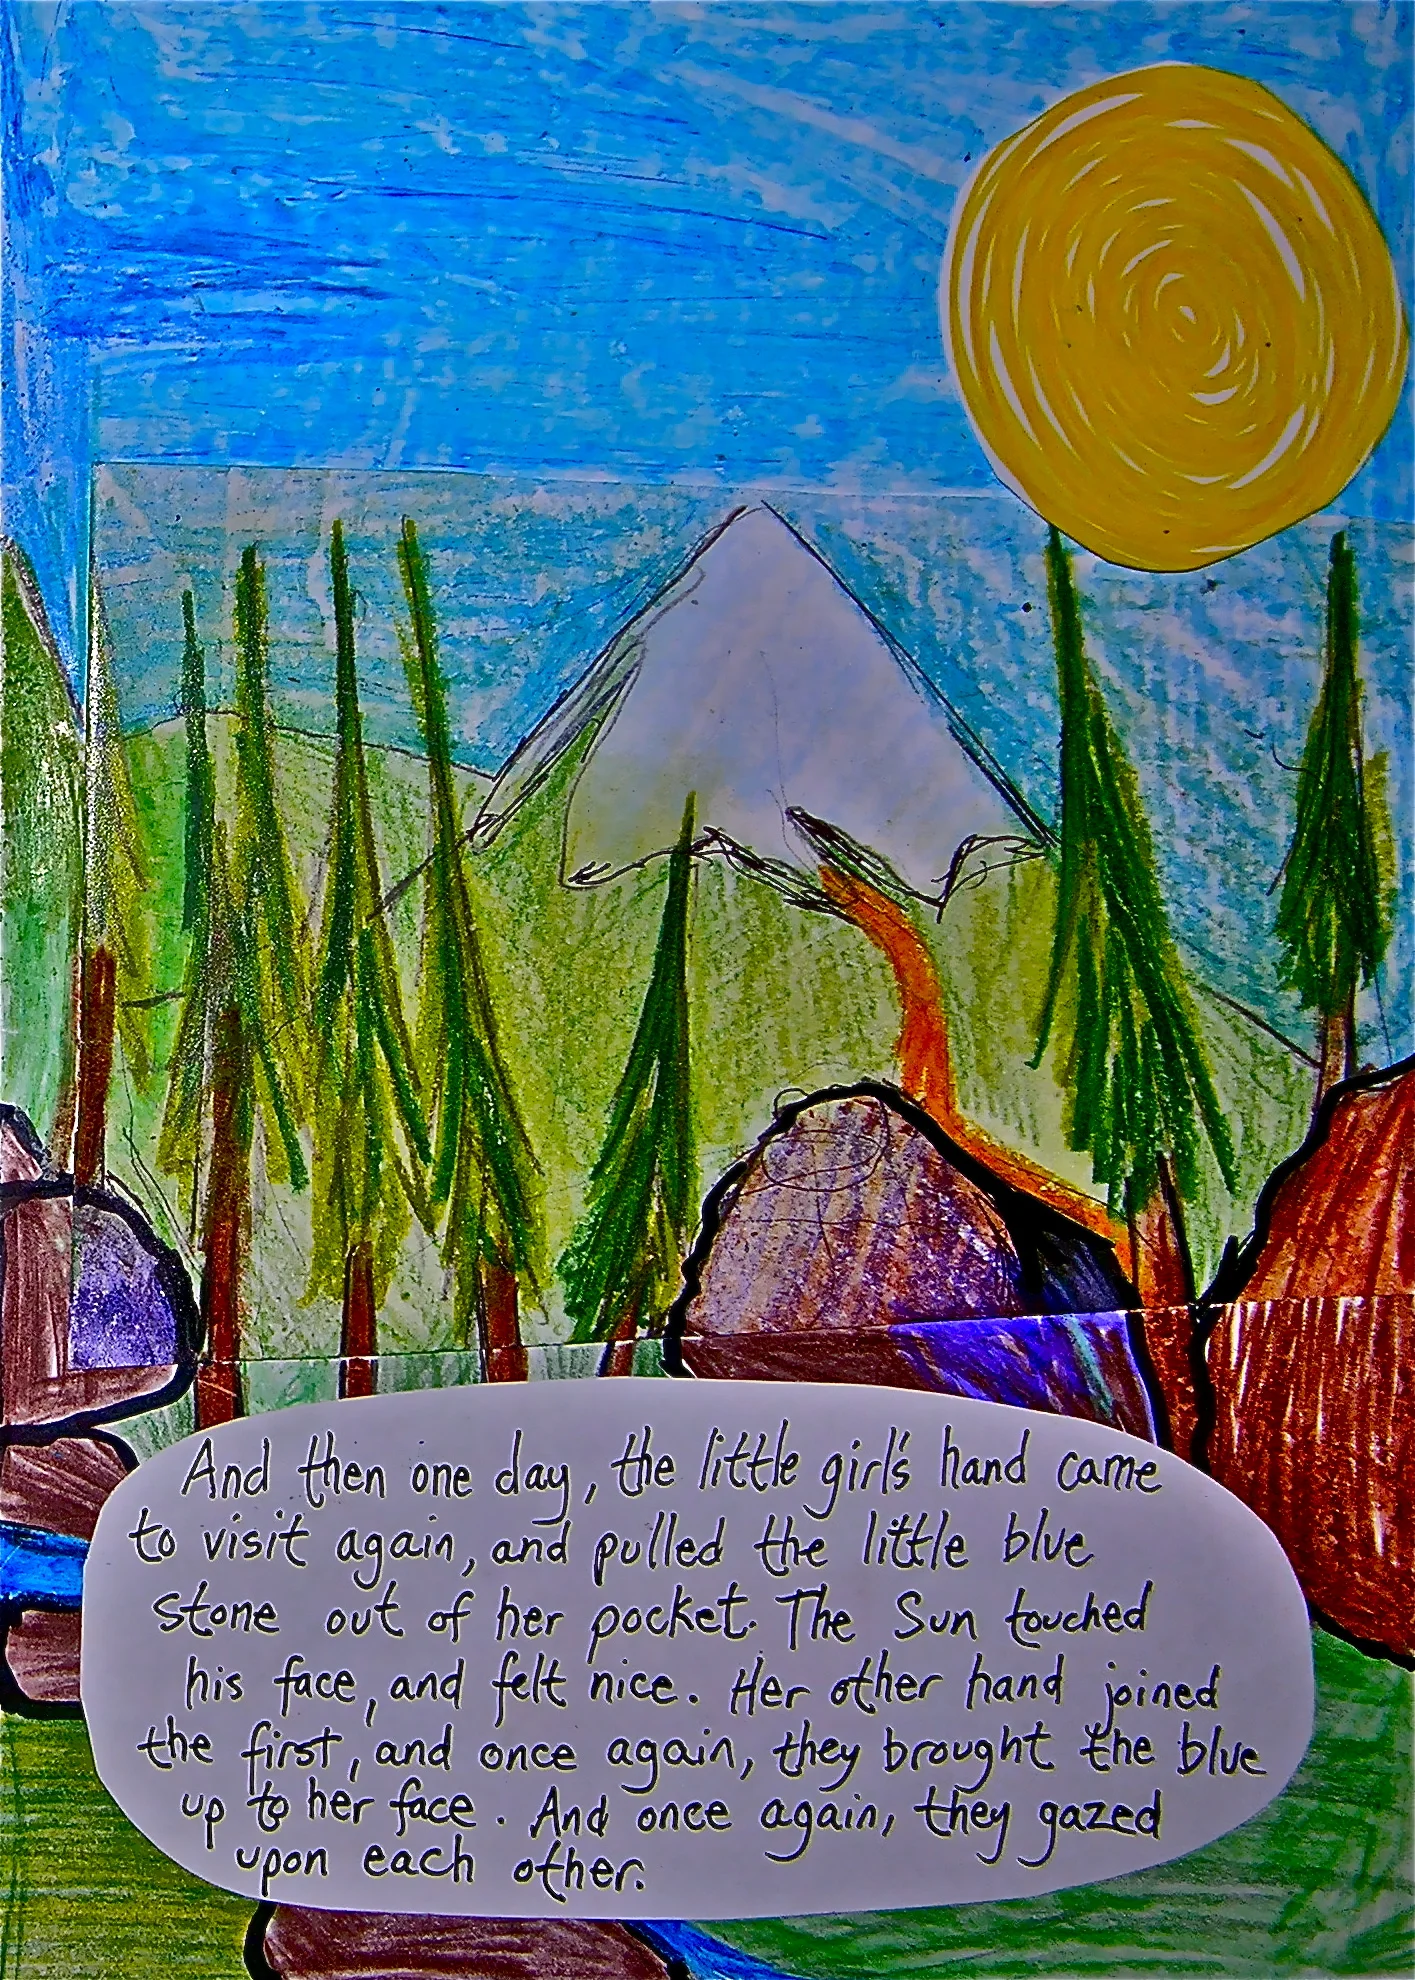 And then one day, the little girl's hand came
to visit again, and pulled the little blue
stone out of her pocket. The Sun touched
his face, and felt nice. Her other hand joined
the first, and once again, they brought the blue
up to her face. And once again, they gazed
upon each other.